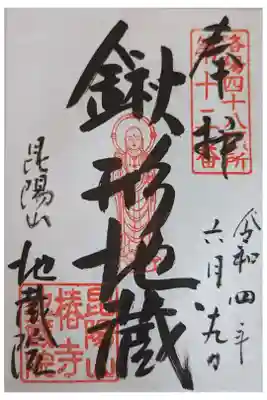 奉拝
第十二番
鍬形地蔵
令和四年
六月十九日
昆陽山
地蔵院
昆陽山
椿寺
地蔵院